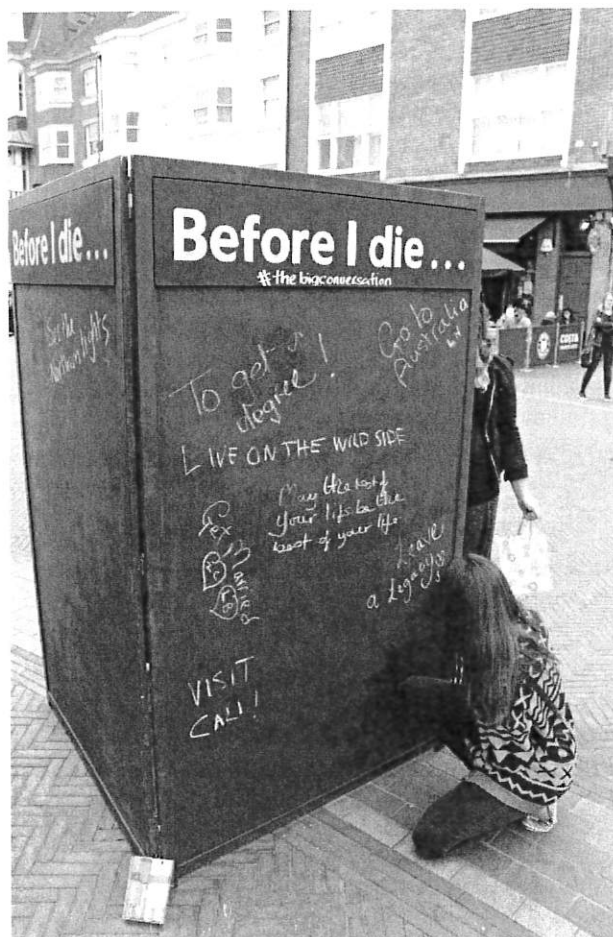 Before I die...
See the
northern lights
Before I die...
#thebigconversation
To get a
degree!
Go to
Australia
LIVE ON THE WILD SIDE
May the rest of
your life be the
best of your life
Leave
a Legacy
Married
VISIT
CALI!
COSTA